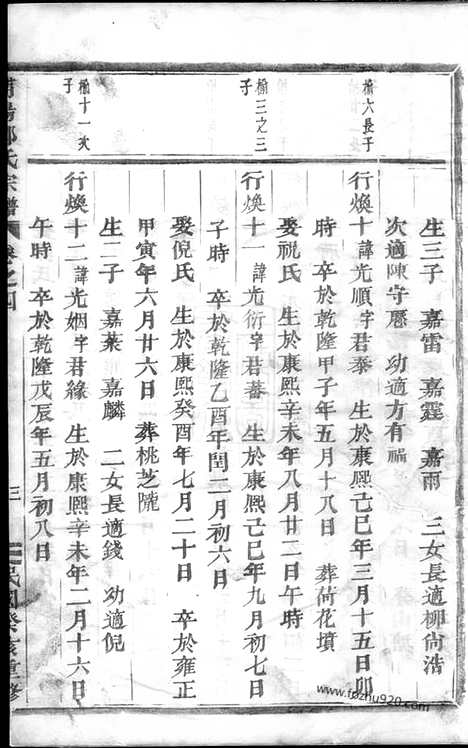 生三子　嘉雷　嘉霆　嘉雨　三女長適柳尙浩
次適陳守歷　幼適方有
楡六長子
行煥十諱光順字君泰　生於康熙己巳年三月十五日卯
時　卒於乾隆甲子年五月十八日　葬荷花墳
娶祝氏　生於康熙辛未年八月廿二日午時
楡三之三
子
行煥十一諱光衍字君蕃　生於康熙己巳年九月初七日
子時　卒於乾隆乙酉年閏二月初六日
娶倪氏　生於康熙癸酉年七月二十日　卒於雍正
甲寅年六月廿六日　葬桃芝隴
生二子　嘉葉　嘉麟　二女長適錢　幼適倪
楡十一次
子
行煥十二諱光姻字君緣　生於康熙辛未年二月十六日
午時　卒於乾隆戊辰年五月初八日
氏宗譜
三
民國癸亥重修
www.fozhu920.com